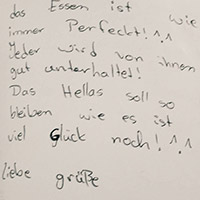 das Essen ist wie
immer Perfeckt!^^
Jeder wird von ihnen
gut unterhaltet!
Das Hellas soll so
bleiben wie es ist
viel Glück noch!^^
liebe grüße